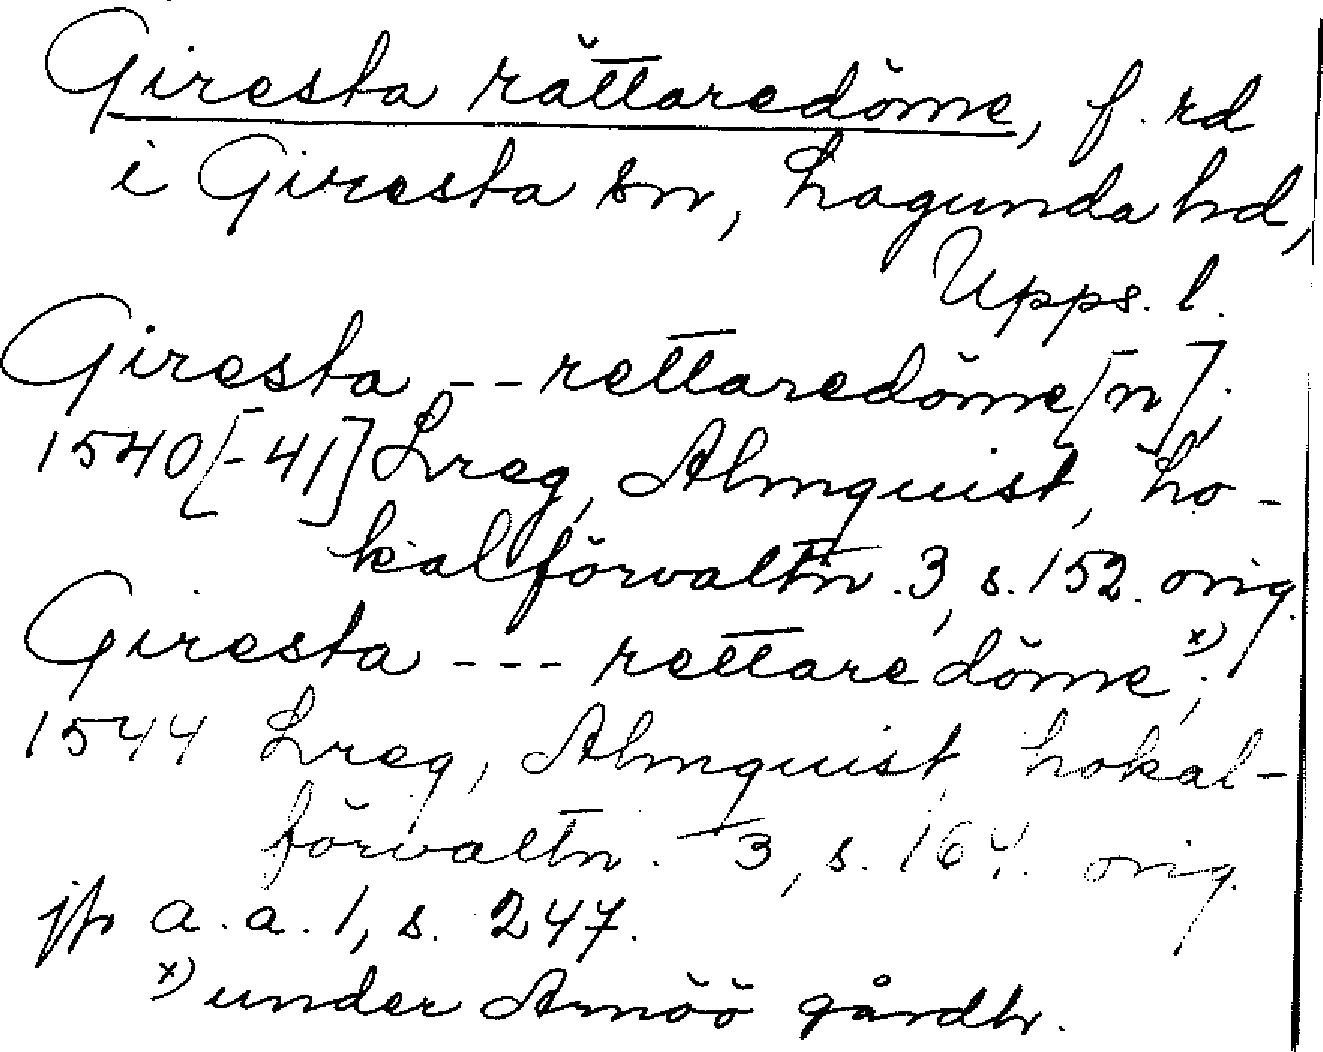 Giresta rättaredöme, f. rd
i Giresta sn, Lagunda hd,
Upps. l.
Giresta -- rettaredöme[n];
1540[-41] Lreg, Almquist, Lo-
kalförvaltn. 3, s. 152. orig.
Giresta --- rettaredöme x);
1544 Lreg, Almquist, Lokal-
förvaltn. 3, s. 164. orig.
jfr a. a. 1, s. 247.
x) under Arnöö gårdh.